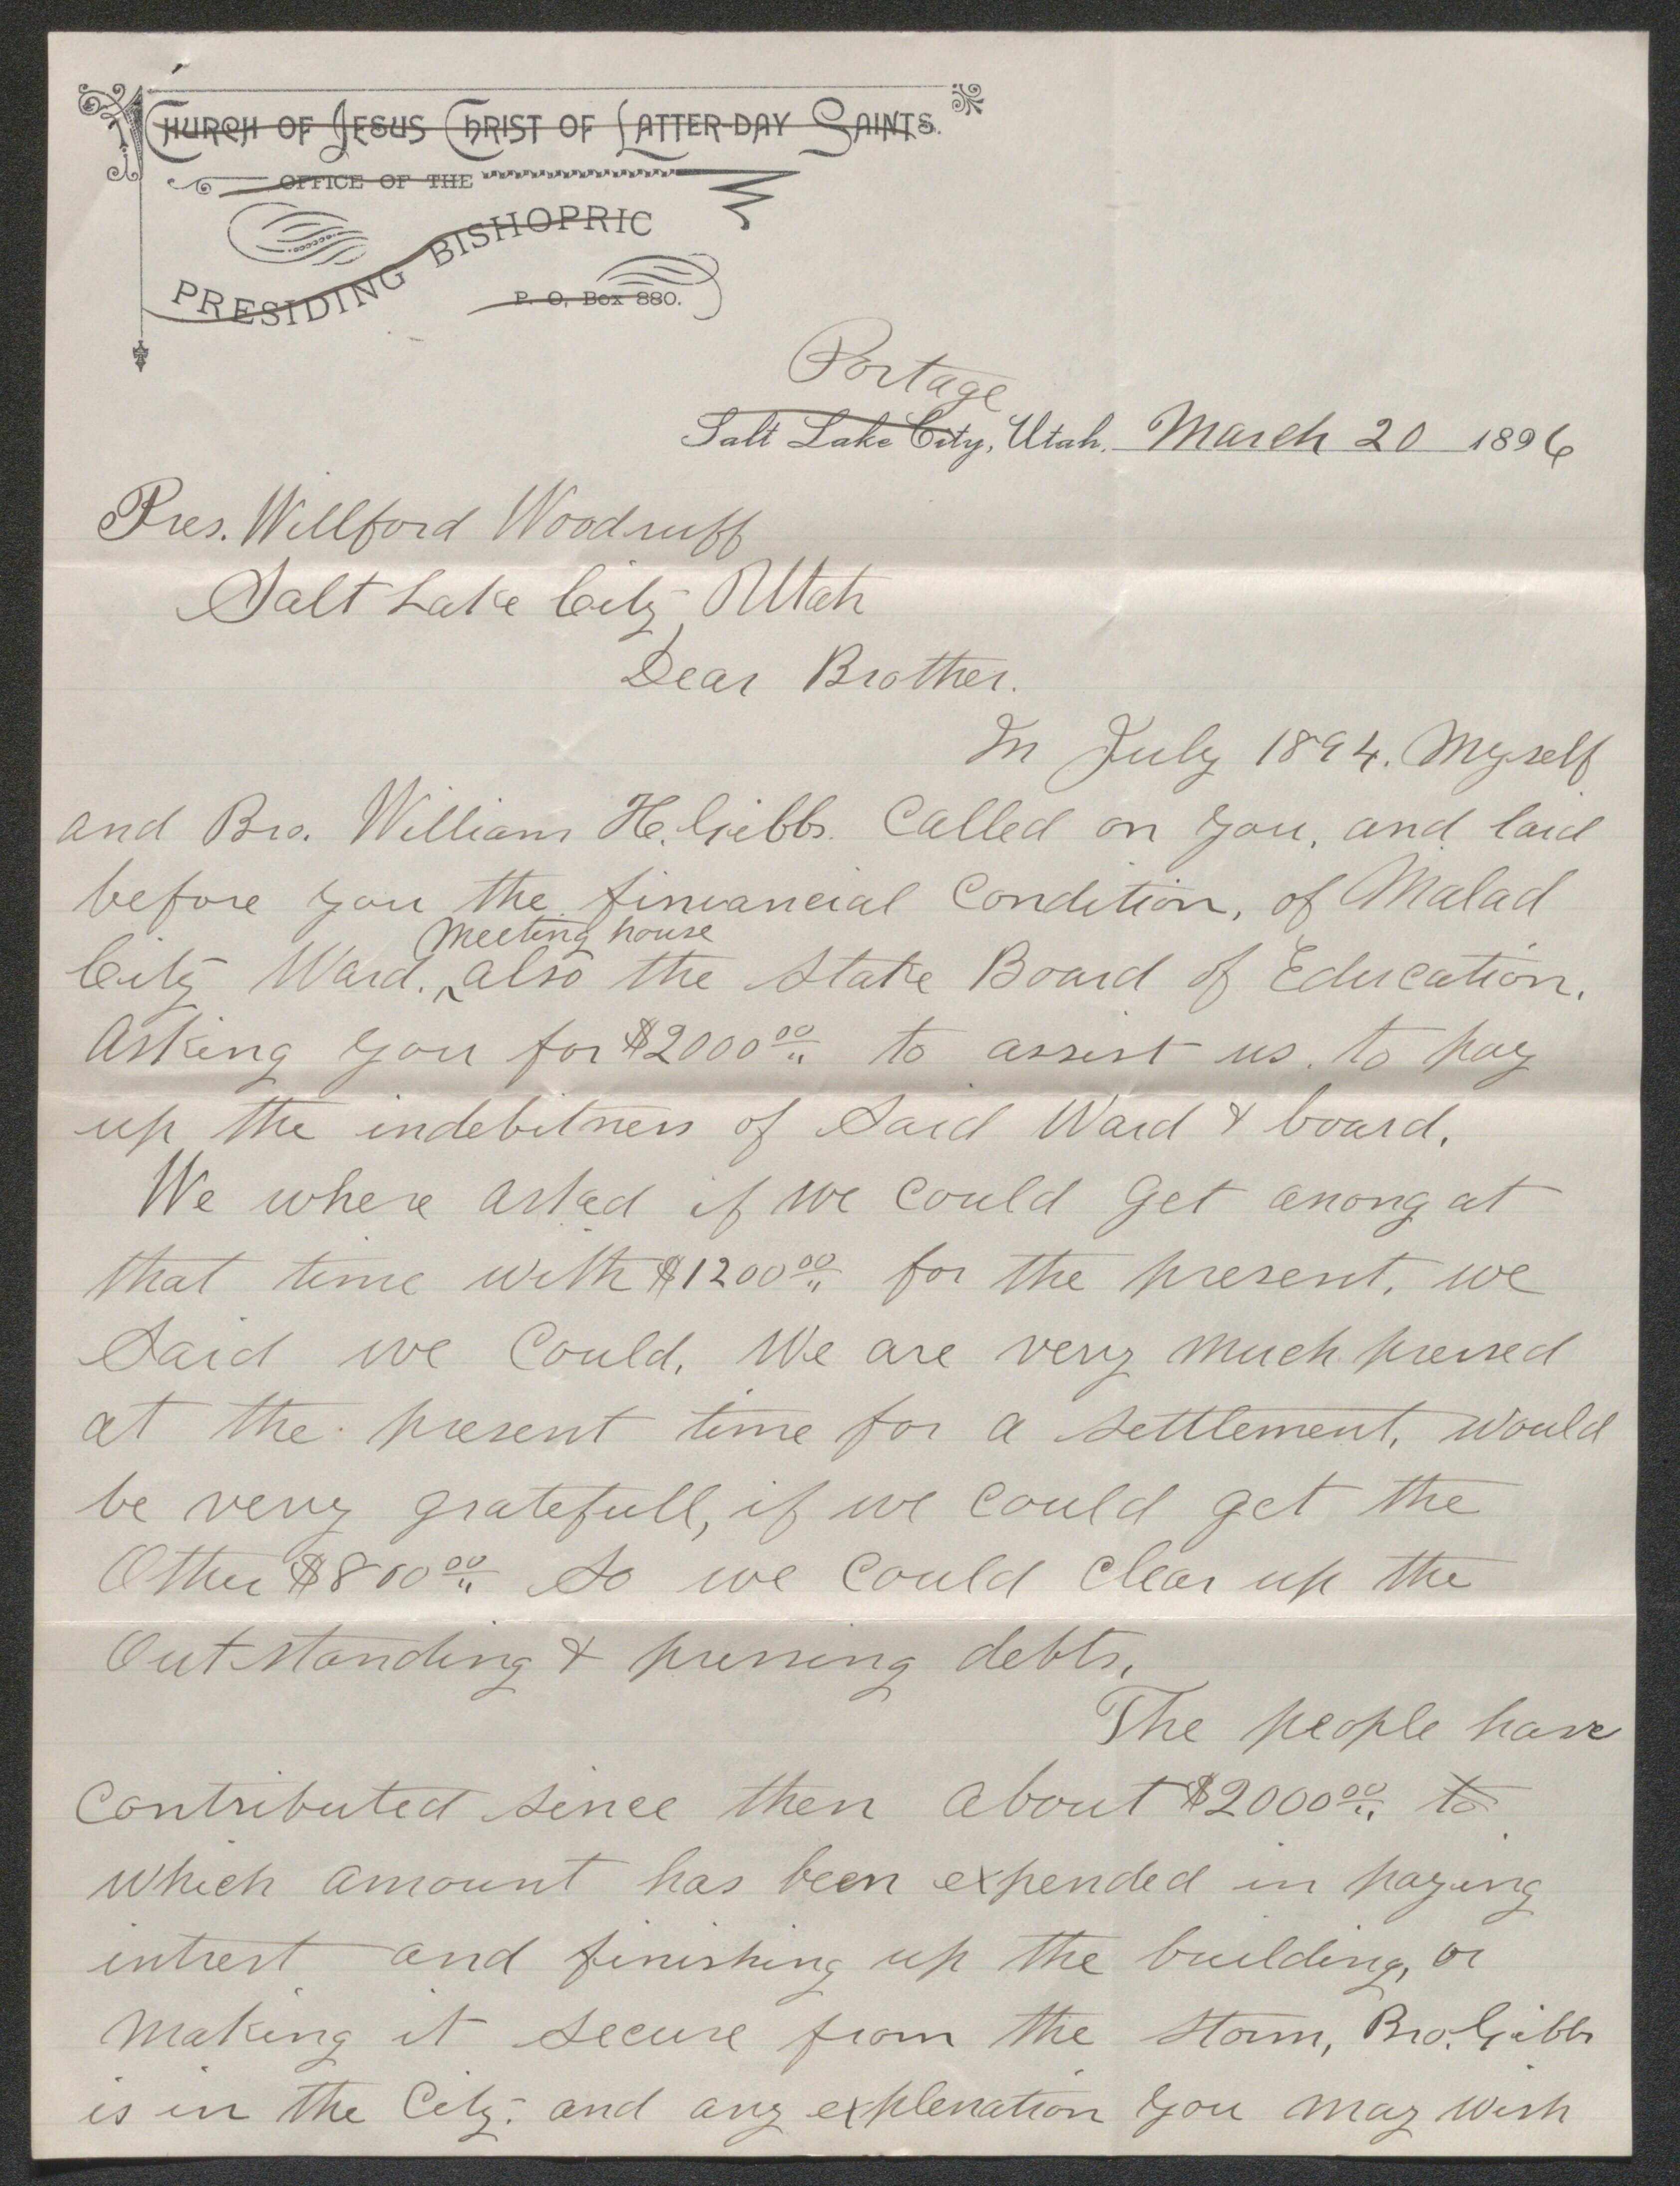 CHURCH OF JESUS CHRIST OF LATTER-DAY SAINTS.
OFFICE OF THE
PRESIDING BISHOPRIC
P. O. Box 880.
Portage
Salt Lake City, Utah. March 20 1896
Pres. Willford Woodruff
Salt Lake City, Utah
Dear Brother.
In July 1894. Myself
and Bro. William H. Gibbs. Called on you, and laid
before you the finiancial Condition, of Malad
Meeting house
City Ward. ‸ also the Stake Board of Education.
Asking you for $2000 00 to assist us. to pay
up the indebitness of Said Ward & board.
We where asked if we Could Get anong at
that time with $1200 00 for the present. we
Said we Could. We are very much pressed
at the present time for a settlement, would
be very gratefull, if we could get the
Other $800 00 So we Could Clear up the
Outstanding & pressing debts.
The people have
Contributed since then about $2000 00 to
which amount has been expended in paying
intrest and finishing up the building, or
Making it secure from the storm, Bro. Gibbs
is in the City. and any explenation you may wish